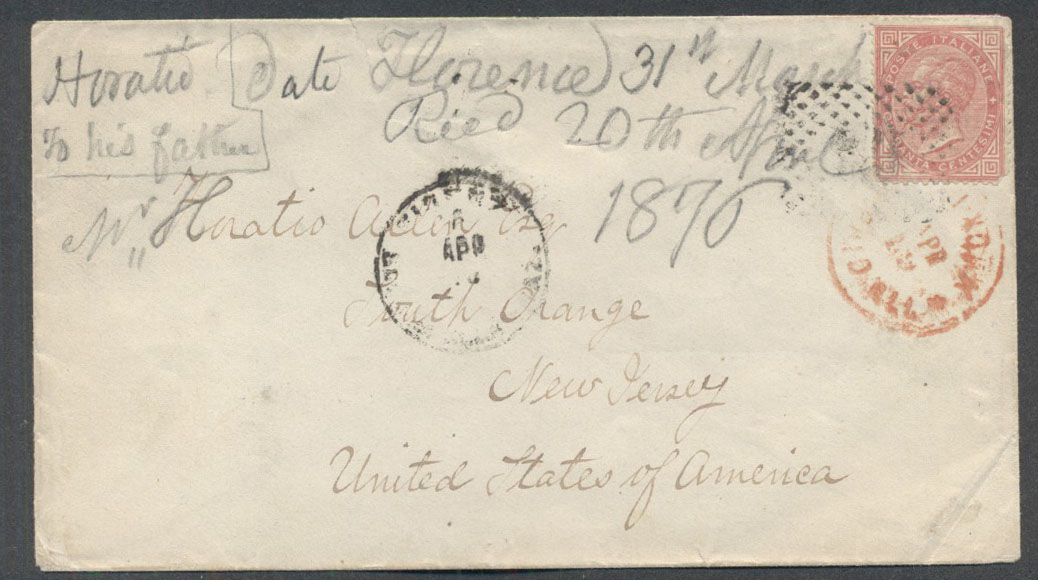 Horatio Date Florence 31st March
to his father Recd 20th April
1876
Mr Horatio Allen Esq
South Orange
New Jersey
United States of America
POSTE ITALIANE
QUARANTA CENTESIMI
APR
NEW YORK
APR